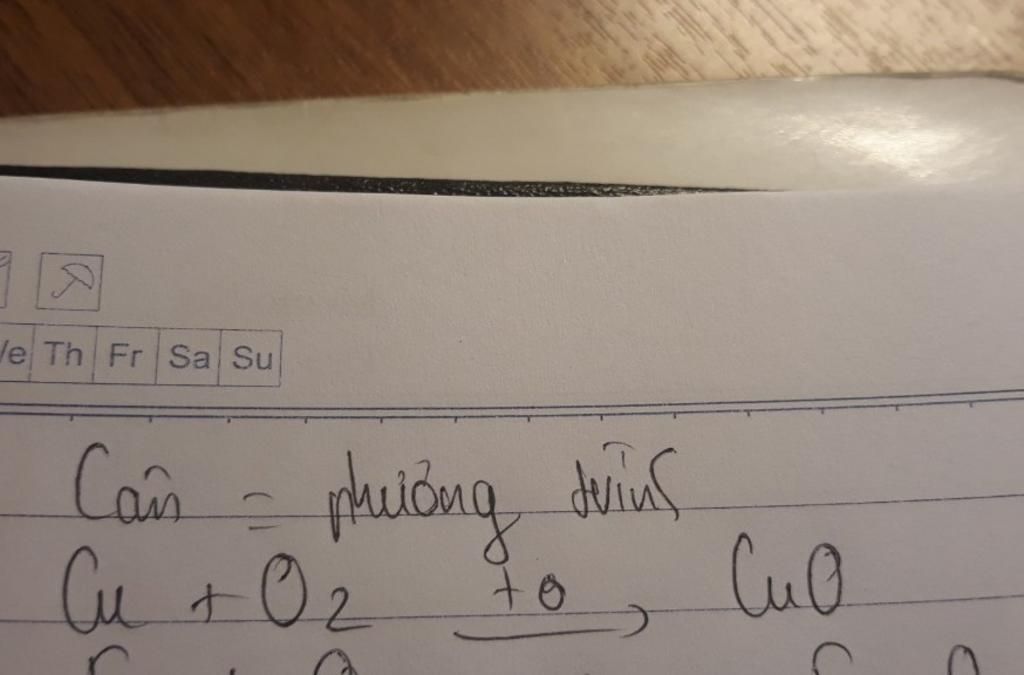 Th Fr Sa Su
Cân = phương trình
Cu + O2 t° CuO